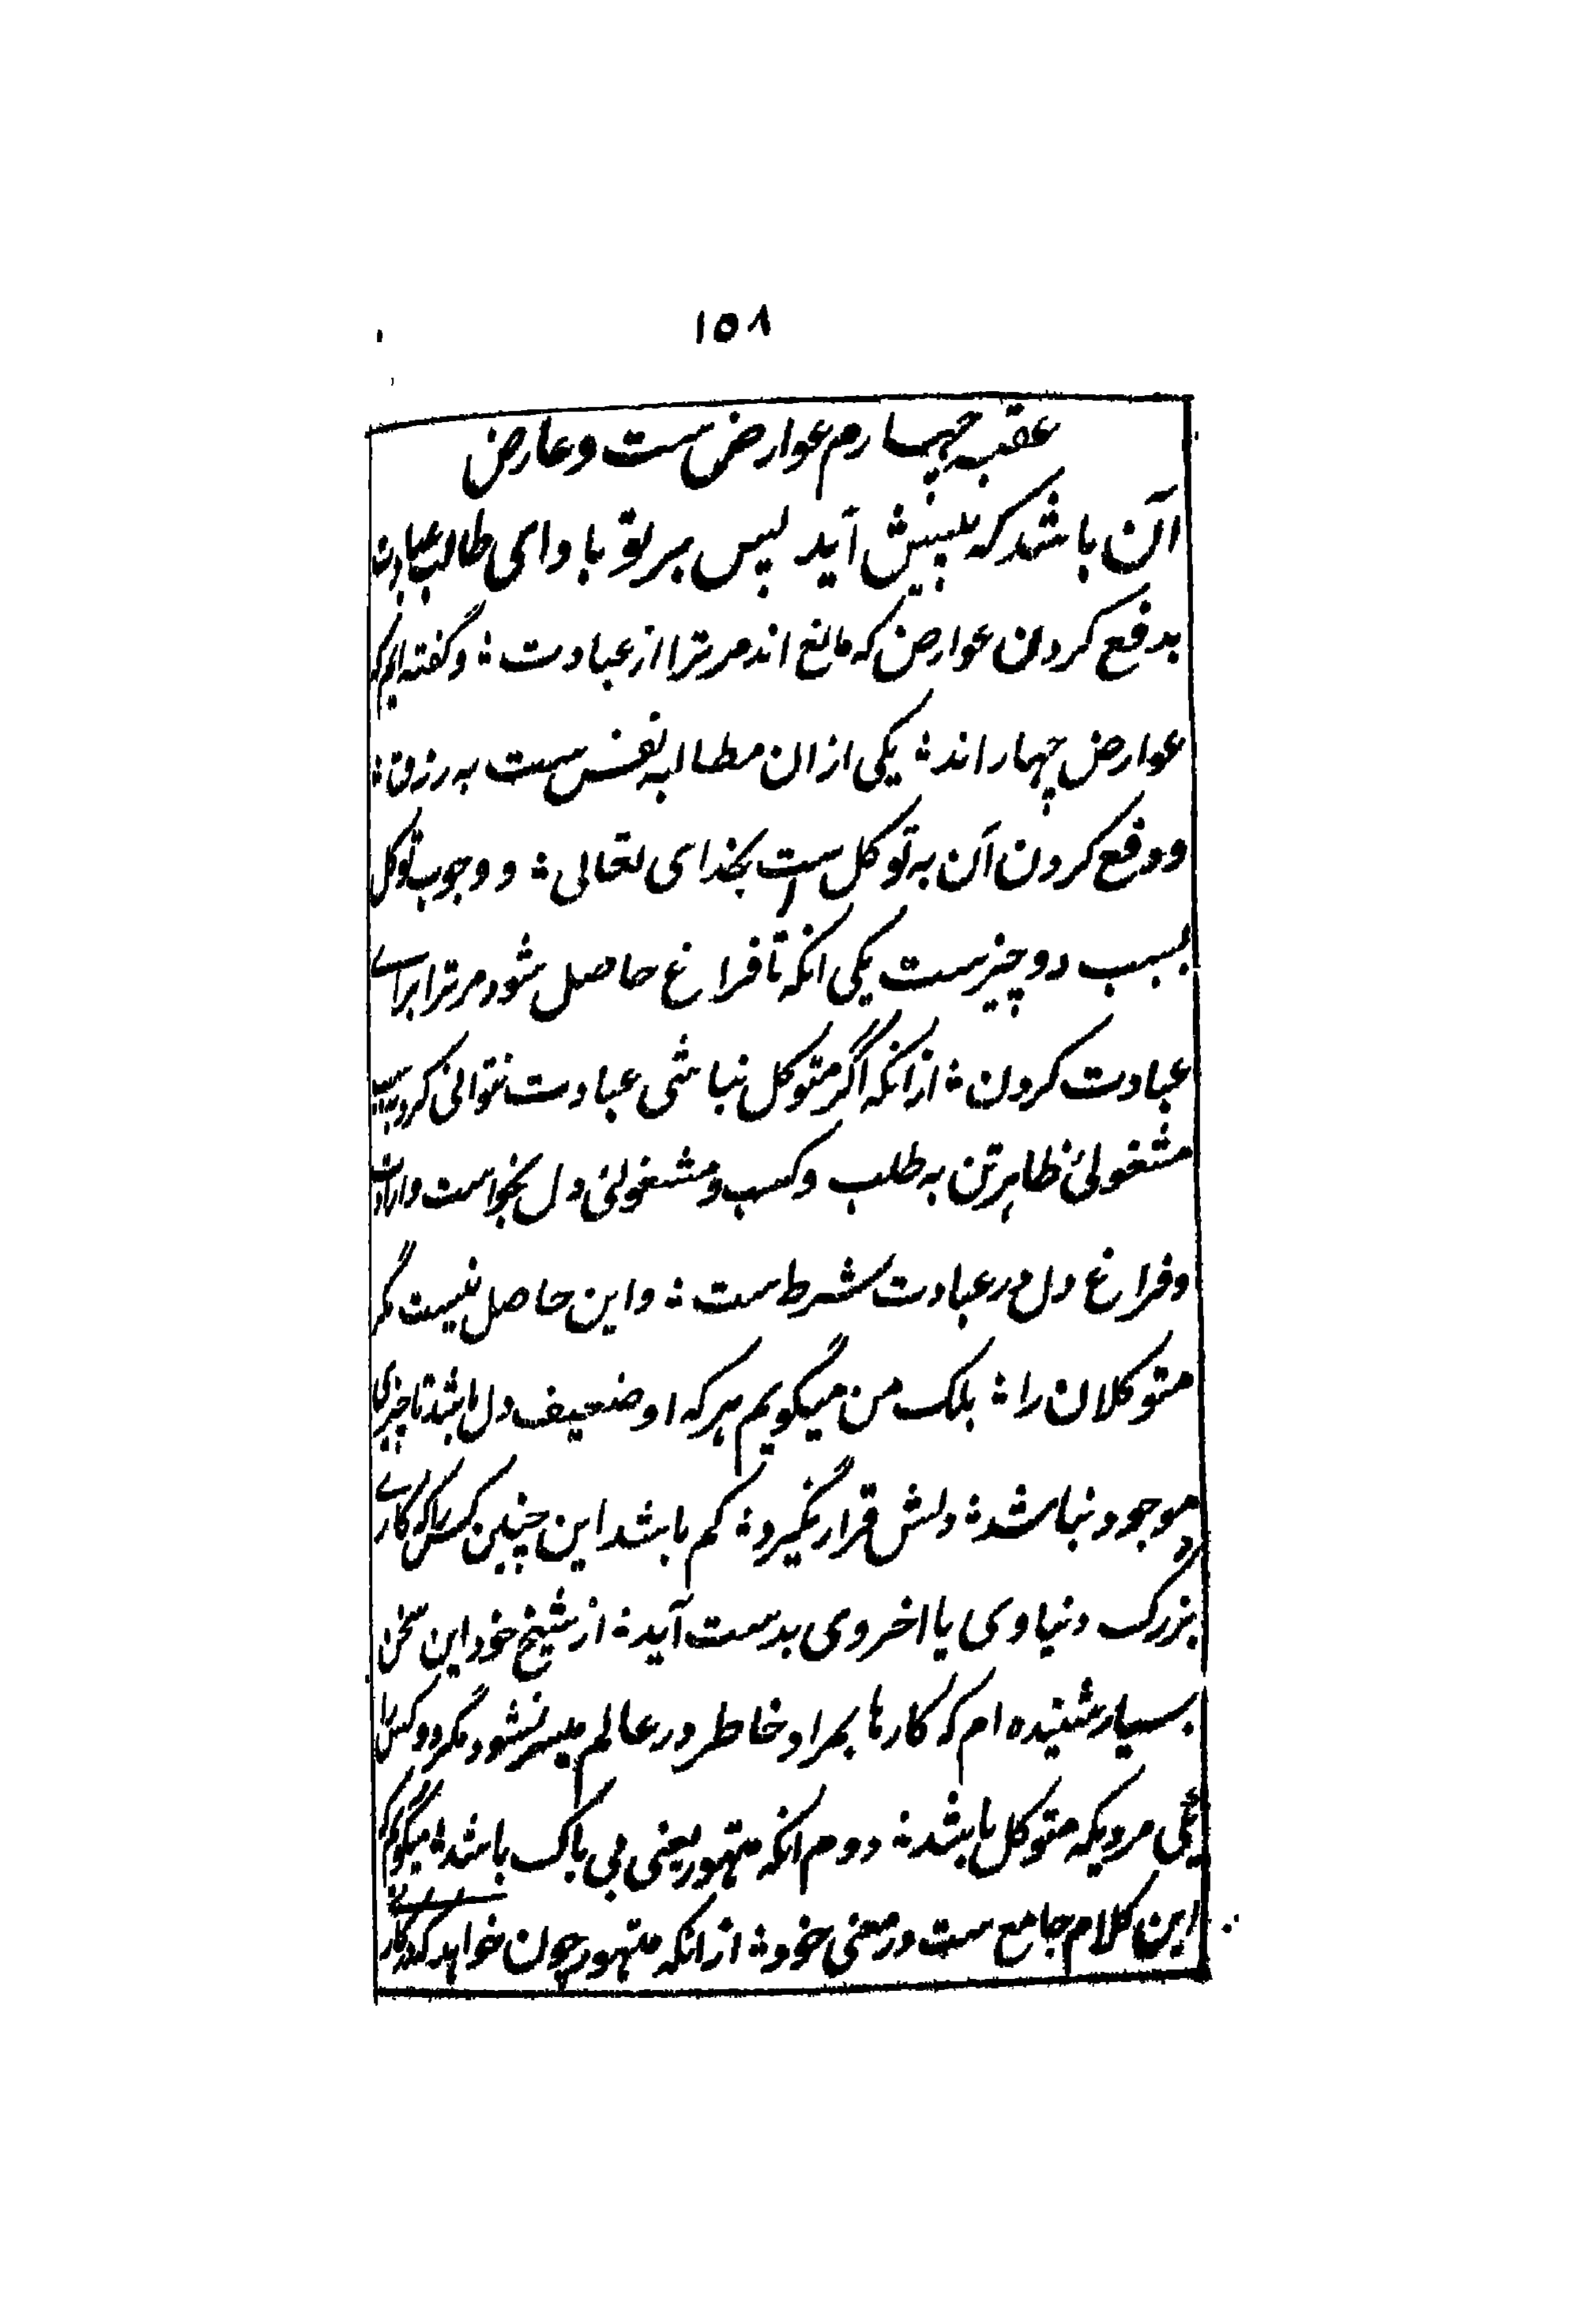 ۱۵۸
عقبه چهارم عوارض ست و عارض
آن باشد که پیش آید پس بر تو با دای طالب عبادت
بدفع کردن عوارض که مانع اند مر ترا از عبادت ؛ و گفته ایم که
عوارض چهار اند ؛ یکی ازان مطالبه نفس ست به رزق ؛
و دفع کردن آن به توکل ست بخدای تعالی ؛ و وجوب توکل
بسبب دو چیزست یکی انکه تا فراغ حاصل شود مر ترا براے
عبادت کردن ؛ ازانکه اگر متوکل نباشی عبادت نتوانی کرد بسبب
مشغولئ ظاهر تن به طلب و کسب و مشغولئ دل بخواست و ارادت
و فراغ دل در عبادت شرط ست ؛ و این حاصل نیست مگر
متوکلان را ؛ بلک من میگویم هر که او ضعیف دل باشد تا چیزی
موجود نباشد ؛ دلش قرار نگیرد ؛ کم باشد این چنین کس را که کارے
بزرگ دنیاوی یا اخروی بدست آید ؛ از شیخ خود این سخن
بسیار شنیده ام که کارها بمراد خاطر در عالم میسر نشود مگر دو کس را
یکی مردیکه متوکل باشد ؛ دوم انکه متهور یعنی بی باک باشد ؛ میگویم که
این کلام جامع ست در معنی خود ؛ ازانکه متهور چون خواهد که کارے